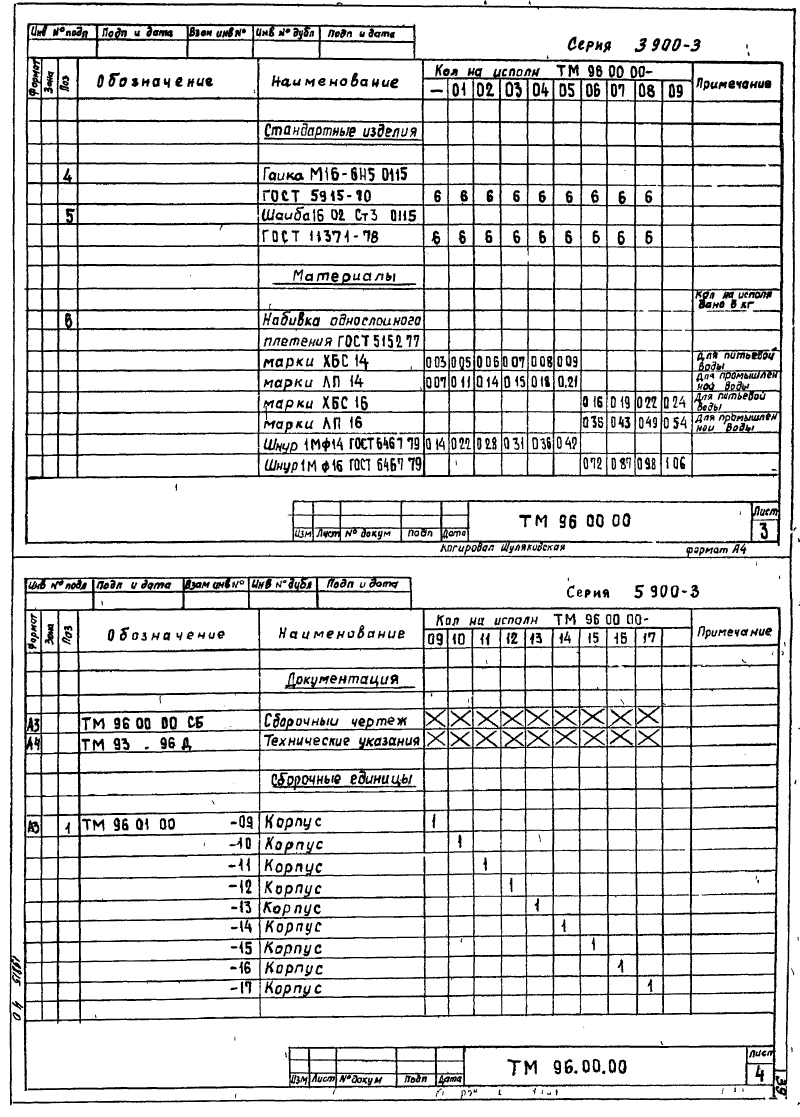 Инв № подл Подп и дата Взам инв № Инв № дубл Подп и дата
Серия 3 900-3
Формат Зона Поз Обозначение Наименование Кол на исполн ТМ 96 00 00- Примечание
— 01 02 03 04 05 06 07 08 09
Стандартные изделия
4 Гайка М16-6Н5 0115
ГОСТ 5915-70 6 6 6 6 6 6 6 6 6
5 Шайба 16 02 Ст3 0115
ГОСТ 11371-78 6 6 6 6 6 6 6 6 6
Материалы
Кол на исполн
дано в кг
6 Набивка однослойного
плетения ГОСТ 5152 77
марки ХБС 14 0 03 0 05 0 06 0 07 0 08 0 09 Для питьевой воды
марки ЛП 14 0 07 0 11 0 14 0 15 0 18 0,21 Для промышлен ной воды
марки ХБС 16 0 16 0 19 0 22 0 24 Для питьевой воды
марки ЛП 16 0 36 0 43 0 49 0 54 Для промышлен ной воды
Шнур 1М ф14 ГОСТ 6467 79 0 14 0 22 0 28 0 31 0 36 0 42
Шнур 1М ф16 ГОСТ 6467 79 0 72 0 87 0 98 1 06
ТМ 96 00 00 Лист
3
Изм Лист № докум Подп Дата
Копировал Шуляковская формат А4
Инв № подл Подп и дата Взам инв № Инв № дубл Подп и дата
Серия 5 900-3
Формат Зона Поз Обозначение Наименование Кол на исполн ТМ 96 00 00- Примечание
09 10 11 12 13 14 15 16 17
Документация
А3 ТМ 96 00 00 СБ Сборочный чертеж
А4 ТМ 93 . 96 Д Технические указания
Сборочные единицы
А3 1 ТМ 96 01 00 -09 Корпус 1
-10 Корпус 1
-11 Корпус 1
-12 Корпус 1
-13 Корпус 1
-14 Корпус 1
-15 Корпус 1
-16 Корпус 1
-17 Корпус 1
ТМ 96.00.00 Лист
4
Изм Лист № докум Подп Дата
39